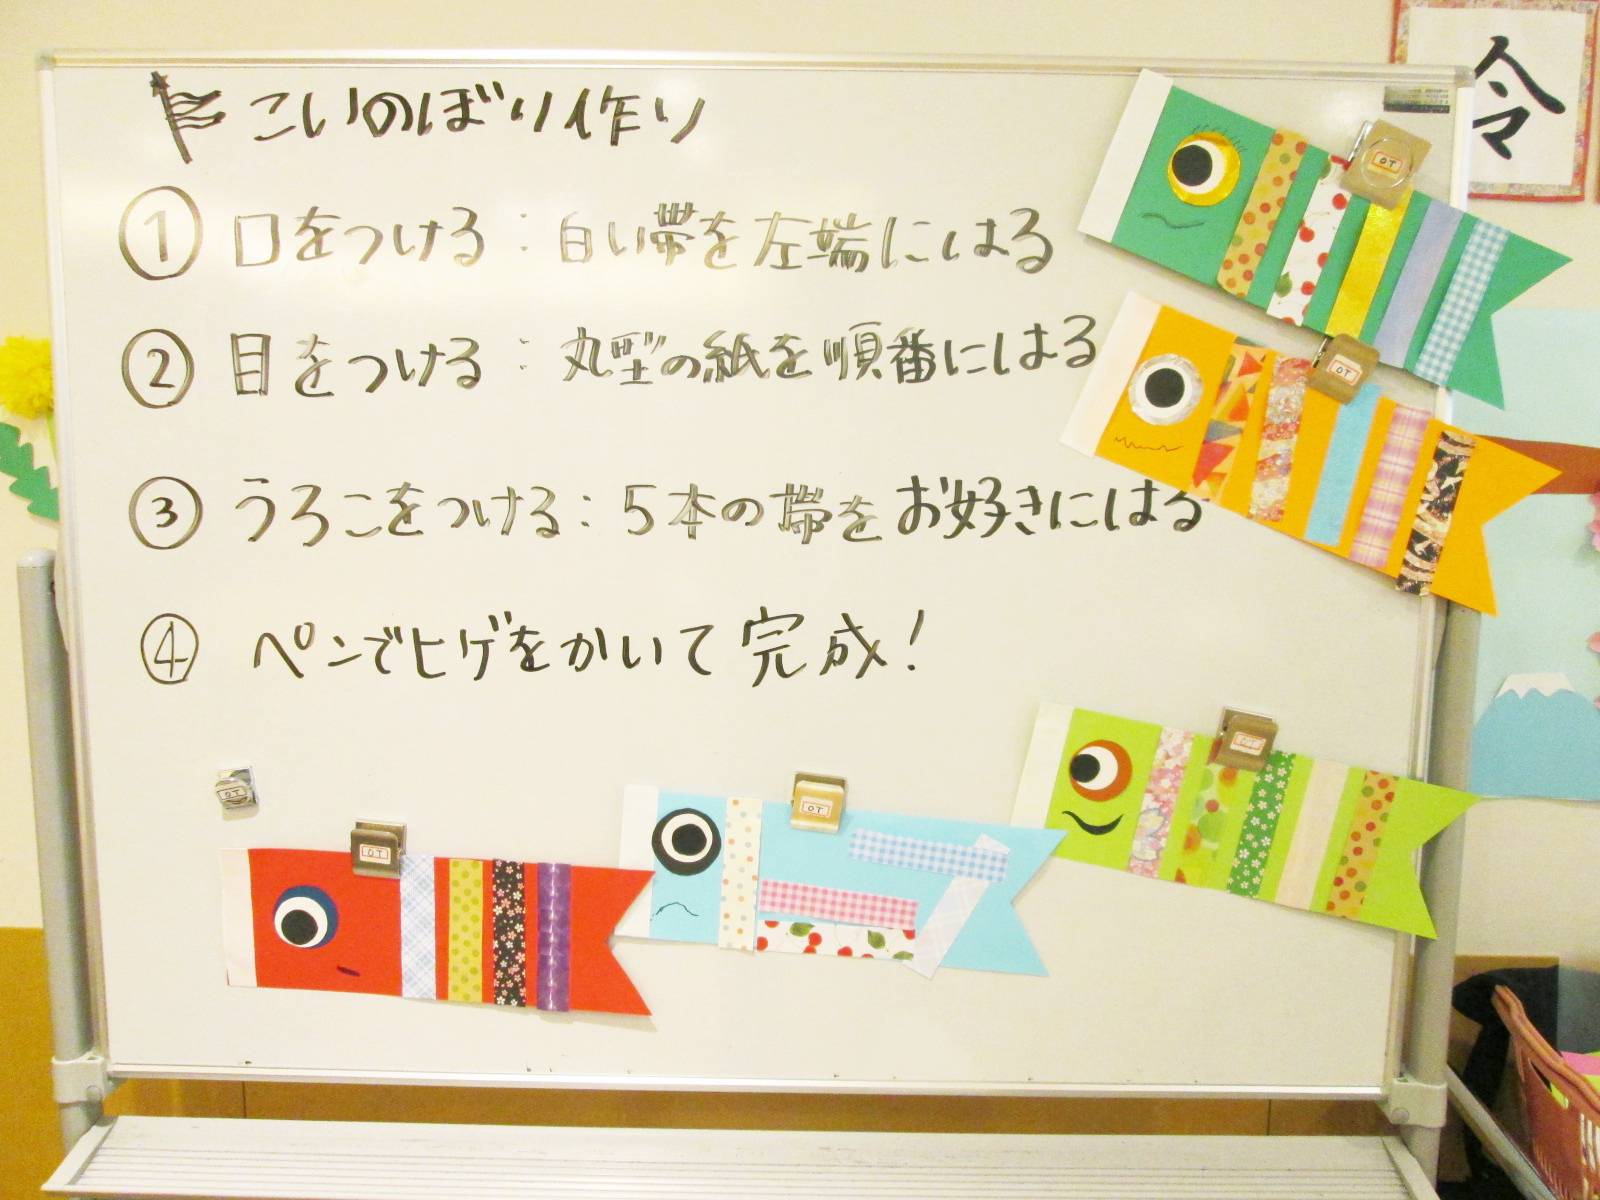 こいのぼり作り
① 口をつける：白い帯を左端にはる
② 目をつける：丸型の紙を順番にはる
③ うろこをつける：5本の帯をお好きにはる
④ ペンでヒゲをかいて完成！
令
OT
OT
OT
OT
OT
OT